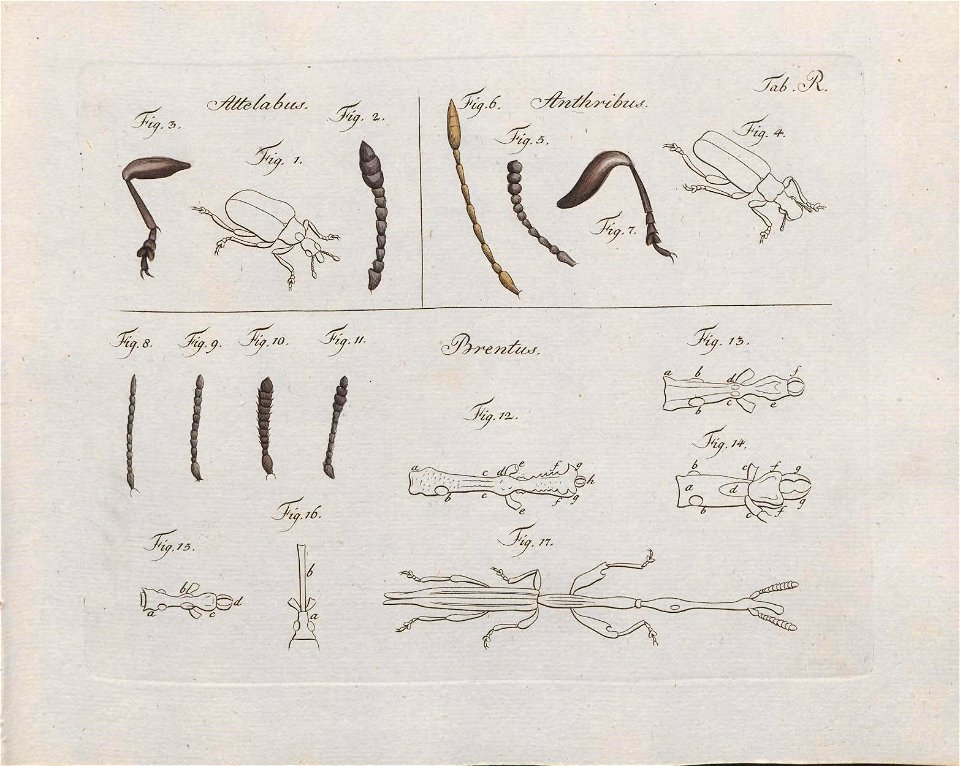 Tab. R.
Attelabus.
Fig. 3.
Fig. 1.
Fig. 2.
Anthribus.
Fig. 6.
Fig. 5.
Fig. 7.
Fig. 4.
Brentus.
Fig. 8.
Fig. 9.
Fig. 10.
Fig. 11.
Fig. 12.
a b c c d e e f f g g h
Fig. 13.
a b b d c e f
Fig. 14.
a b b c c d f f g g
Fig. 15.
a b c d
Fig. 16.
b
a
Fig. 17.